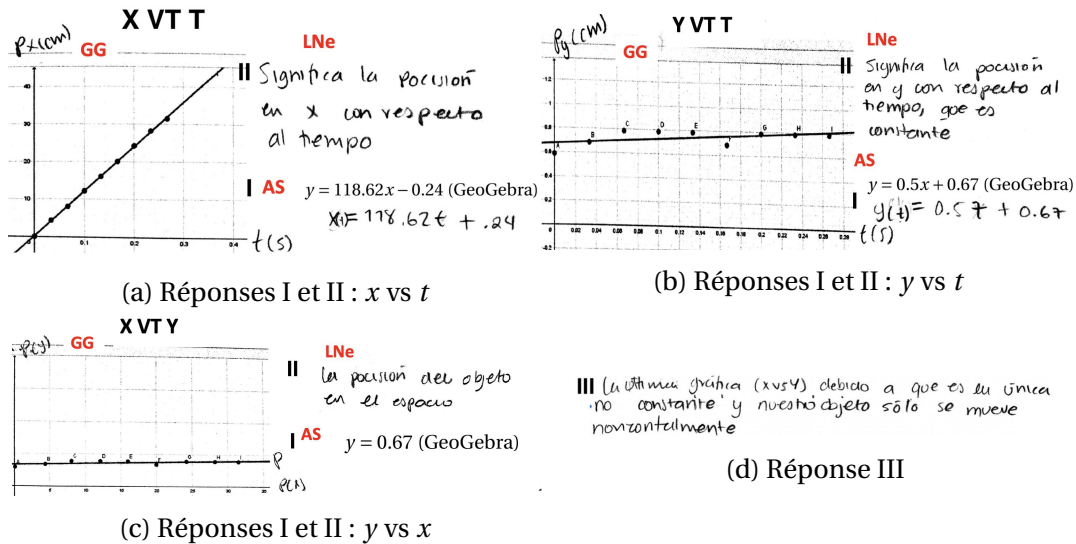 X VT T
Px(cm)
GG
LNe
II Significa la pocisión
en x con respecto
al tiempo
40
30
10
I AS y = 118.62x − 0.24 (GeoGebra)
x(t)= 118.62t + .24
0
0.1
0.2
0.3
0.4
t(s)
(a) Réponses I et II : x vs t
Y VT T
Py(cm)
GG
LNe
II Significa la pocisión
en y con respecto al
tiempo, que es
constante
AS
y = 0.5x + 0.67 (GeoGebra)
I y(t)= 0.5t + 0.67
1.2
1
0.8
0.6
0.4
0.2
0
-0.2
A B C D E F G H I
0 0.02 0.04 0.06 0.08 0.1 0.12 0.14 0.16 0.18 0.2 0.22 0.24 0.26 0.28
t(s)
(b) Réponses I et II : y vs t
X VT Y
P(y)
GG
LNe
II La pocisión del objeto
en el espacio
I AS y = 0.67 (GeoGebra)
A B C D E F G H I
P
5 10 15 20 25 30 35
P(x)
(c) Réponses I et II : y vs x
III La última gráfica (x vs y) debido a que es la única
no constante y nuestro objeto sólo se mueve
horizontalmente
(d) Réponse III